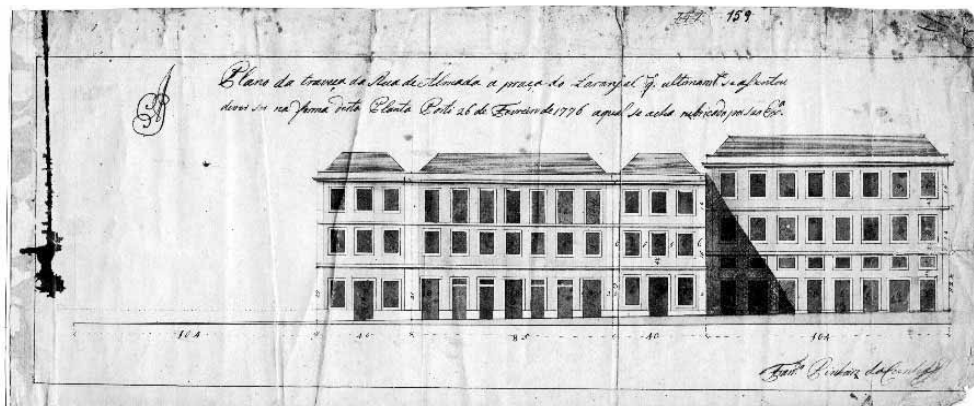 159
Plano da traveça da Rua de Almada a praça do Laranjal q. ultimamte. se asentou
deve ser na forma desta Planta Porto 26 de Fevreiro de 1776 aqual se acha rubricado por sua Exª.
104 40 85 40 104
Franco. Pinheiro da Cunha